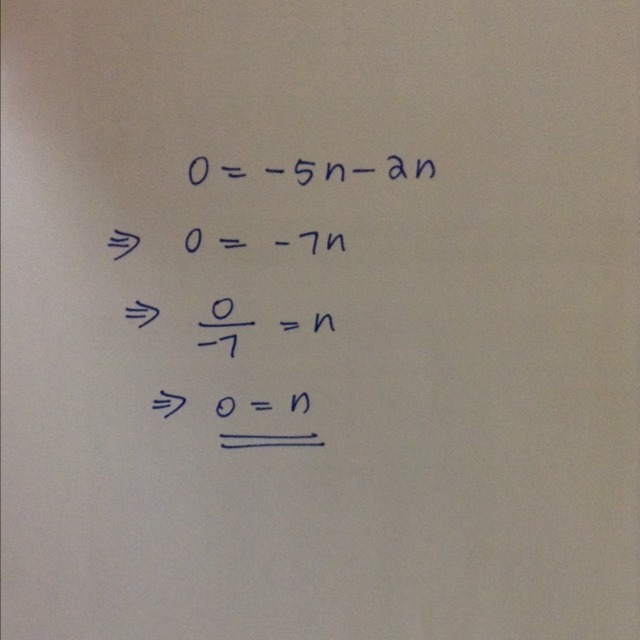 0 = -5n - 2n
⇒ 0 = -7n
⇒ 0/-7 = n
⇒ 0 = n